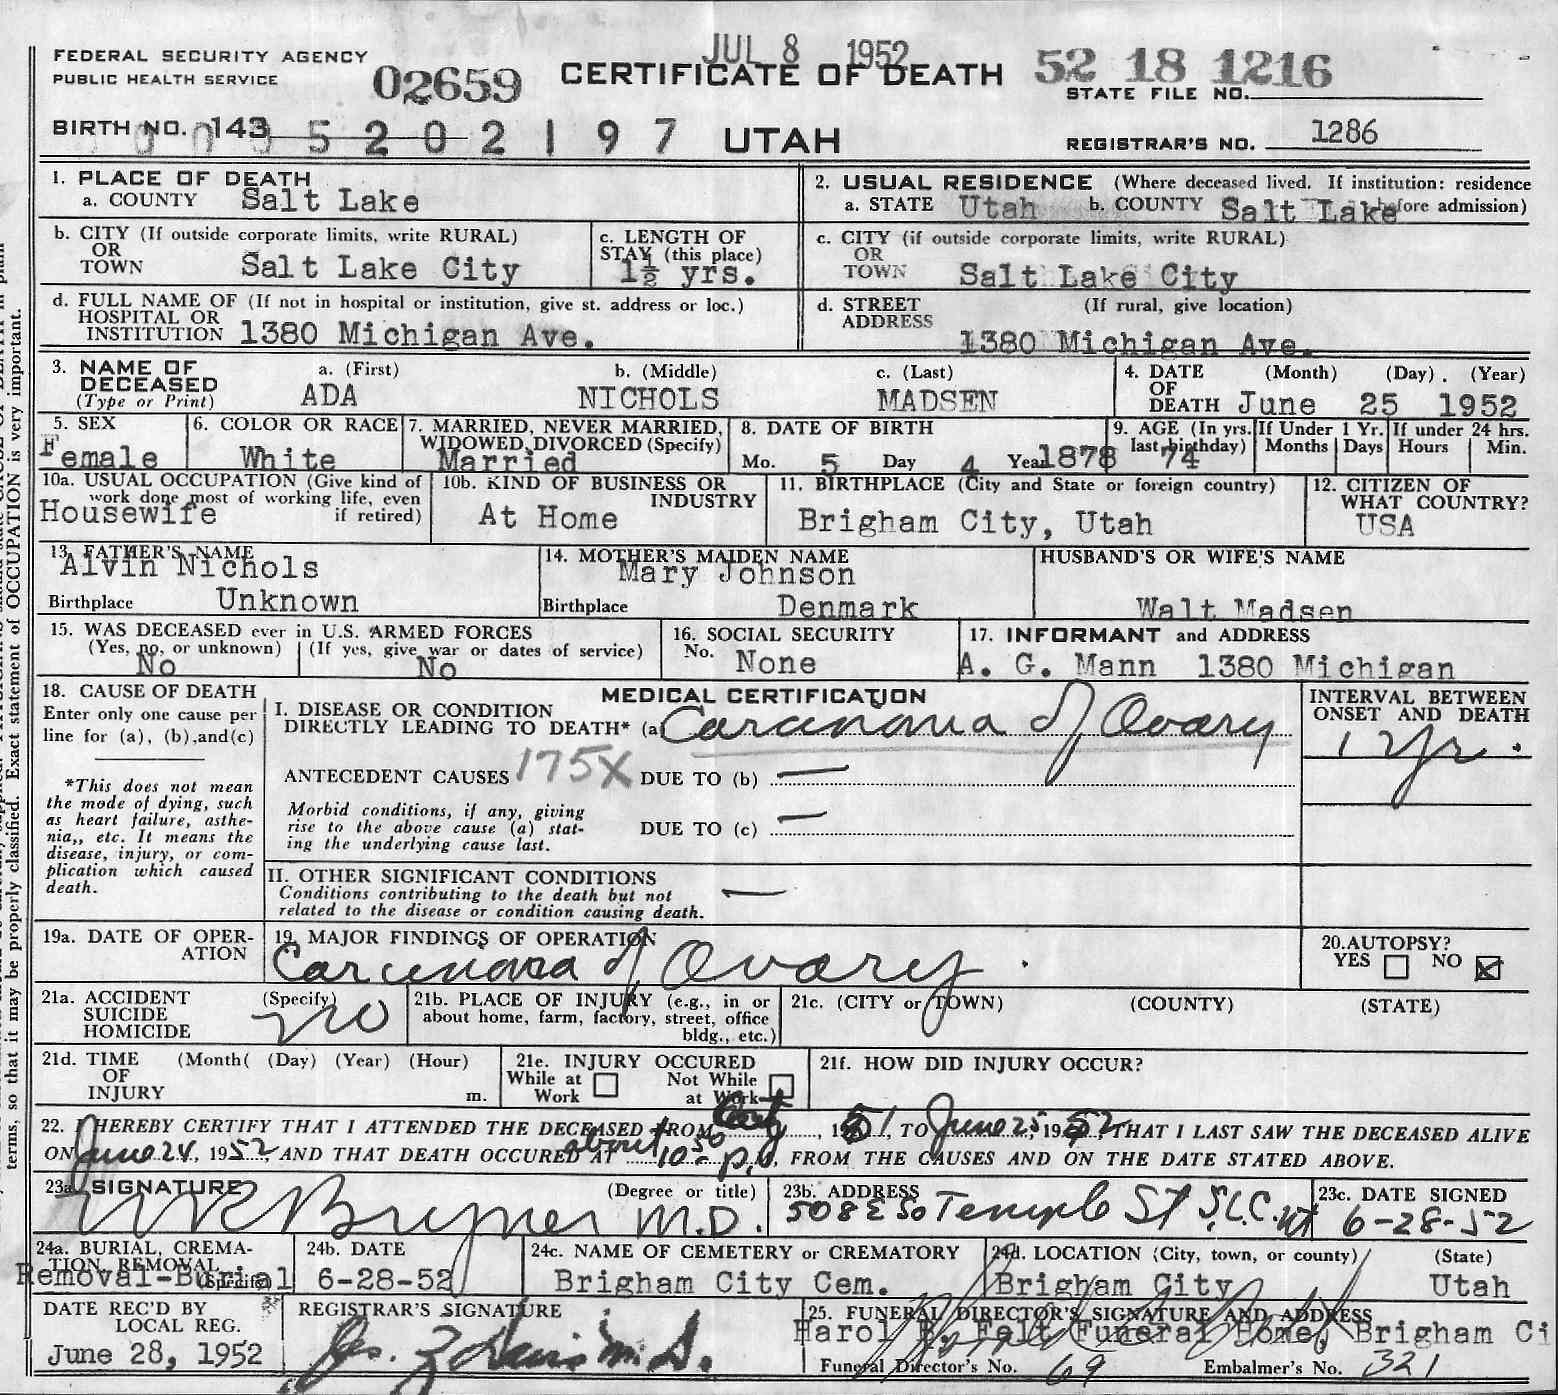 JUL 8 1952
FEDERAL SECURITY AGENCY
PUBLIC HEALTH SERVICE
02659
CERTIFICATE OF DEATH
52 18 1216
STATE FILE NO.
BIRTH NO. 143 5 2 0 2 1 9 7
UTAH
REGISTRAR'S NO. 1286
1. PLACE OF DEATH
a. COUNTY Salt Lake
2. USUAL RESIDENCE (Where deceased lived. If institution: residence before admission)
a. STATE Utah b. COUNTY Salt Lake
b. CITY (If outside corporate limits, write RURAL)
OR
TOWN Salt Lake City
c. LENGTH OF
STAY (this place)
1½ yrs.
c. CITY (if outside corporate limits, write RURAL)
OR
TOWN Salt Lake City
d. FULL NAME OF (If not in hospital or institution, give st. address or loc.)
HOSPITAL OR
INSTITUTION 1380 Michigan Ave.
d. STREET (If rural, give location)
ADDRESS
1380 Michigan Ave.
3. NAME OF a. (First) b. (Middle) c. (Last)
DECEASED
(Type or Print) ADA NICHOLS MADSEN
4. DATE (Month) (Day). (Year)
OF
DEATH June 25 1952
5. SEX
Female
6. COLOR OR RACE
White
7. MARRIED, NEVER MARRIED,
WIDOWED, DIVORCED (Specify)
Married
8. DATE OF BIRTH
Mo. 5 Day 4 Year 1878
9. AGE (In yrs. last birthday) 74
If Under 1 Yr. Months Days
If under 24 hrs. Hours Min.
10a. USUAL OCCUPATION (Give kind of
work done most of working life, even
if retired)
Housewife
10b. KIND OF BUSINESS OR
INDUSTRY
At Home
11. BIRTHPLACE (City and State or foreign country)
Brigham City, Utah
12. CITIZEN OF
WHAT COUNTRY?
USA
13. FATHER'S NAME
Alvin Nichols
Birthplace Unknown
14. MOTHER'S MAIDEN NAME
Mary Johnson
Birthplace Denmark
HUSBAND'S OR WIFE'S NAME
Walt Madsen
15. WAS DECEASED ever in U.S. ARMED FORCES
(Yes, no, or unknown) (If yes, give war or dates of service)
No No
16. SOCIAL SECURITY
No. None
17. INFORMANT and ADDRESS
A. G. Mann 1380 Michigan
18. CAUSE OF DEATH
Enter only one cause per
line for (a), (b),and(c)
*This does not mean
the mode of dying, such
as heart failure, asthe-
nia,, etc. It means the
disease, injury, or com-
plication which caused
death.
MEDICAL CERTIFICATION
I. DISEASE OR CONDITION
DIRECTLY LEADING TO DEATH* (a) Carcinoma of Ovary
INTERVAL BETWEEN
ONSET AND DEATH
1 yr.
ANTECEDENT CAUSES 175X DUE TO (b) —
Morbid conditions, if any, giving
rise to the above cause (a) stat-
ing the underlying cause last.
DUE TO (c) —
II. OTHER SIGNIFICANT CONDITIONS
Conditions contributing to the death but not
related to the disease or condition causing death.
—
19a. DATE OF OPER-
ATION
19. MAJOR FINDINGS OF OPERATION
Carcinoma of Ovary.
20.AUTOPSY?
YES NO
21a. ACCIDENT (Specify)
SUICIDE
HOMICIDE
no
21b. PLACE OF INJURY (e.g., in or
about home, farm, factory, street, office
bldg., etc.)
21c. (CITY or TOWN) (COUNTY) (STATE)
21d. TIME (Month( (Day) (Year) (Hour)
OF
INJURY m.
21e. INJURY OCCURED
While at Work Not While at Work
21f. HOW DID INJURY OCCUR?
22. I HEREBY CERTIFY THAT I ATTENDED THE DECEASED FROM , 1951, TO June 25, 1952, THAT I LAST SAW THE DECEASED ALIVE
ON June 24, 1952, AND THAT DEATH OCCURED AT about 10:50 p.m., FROM THE CAUSES AND ON THE DATE STATED ABOVE.
23a. SIGNATURE (Degree or title)
M.D.
23b. ADDRESS
508 E So Temple St S.L.C. Ut
23c. DATE SIGNED
6-28-52
24a. BURIAL, CREMA-
TION, REMOVAL (Specify)
Removal-Burial
24b. DATE
6-28-52
24c. NAME OF CEMETERY or CREMATORY
Brigham City Cem.
24d. LOCATION (City, town, or county) (State)
Brigham City Utah
DATE REC'D BY
LOCAL REG.
June 28, 1952
REGISTRAR'S SIGNATURE
25. FUNERAL DIRECTOR'S SIGNATURE AND ADDRESS
Harol B. Felt Funeral Home, Brigham Ci
Funeral Director's No. 69 Embalmer's No. 321
terms, so that it may be properly classified. Exact statement of OCCUPATION is very important.